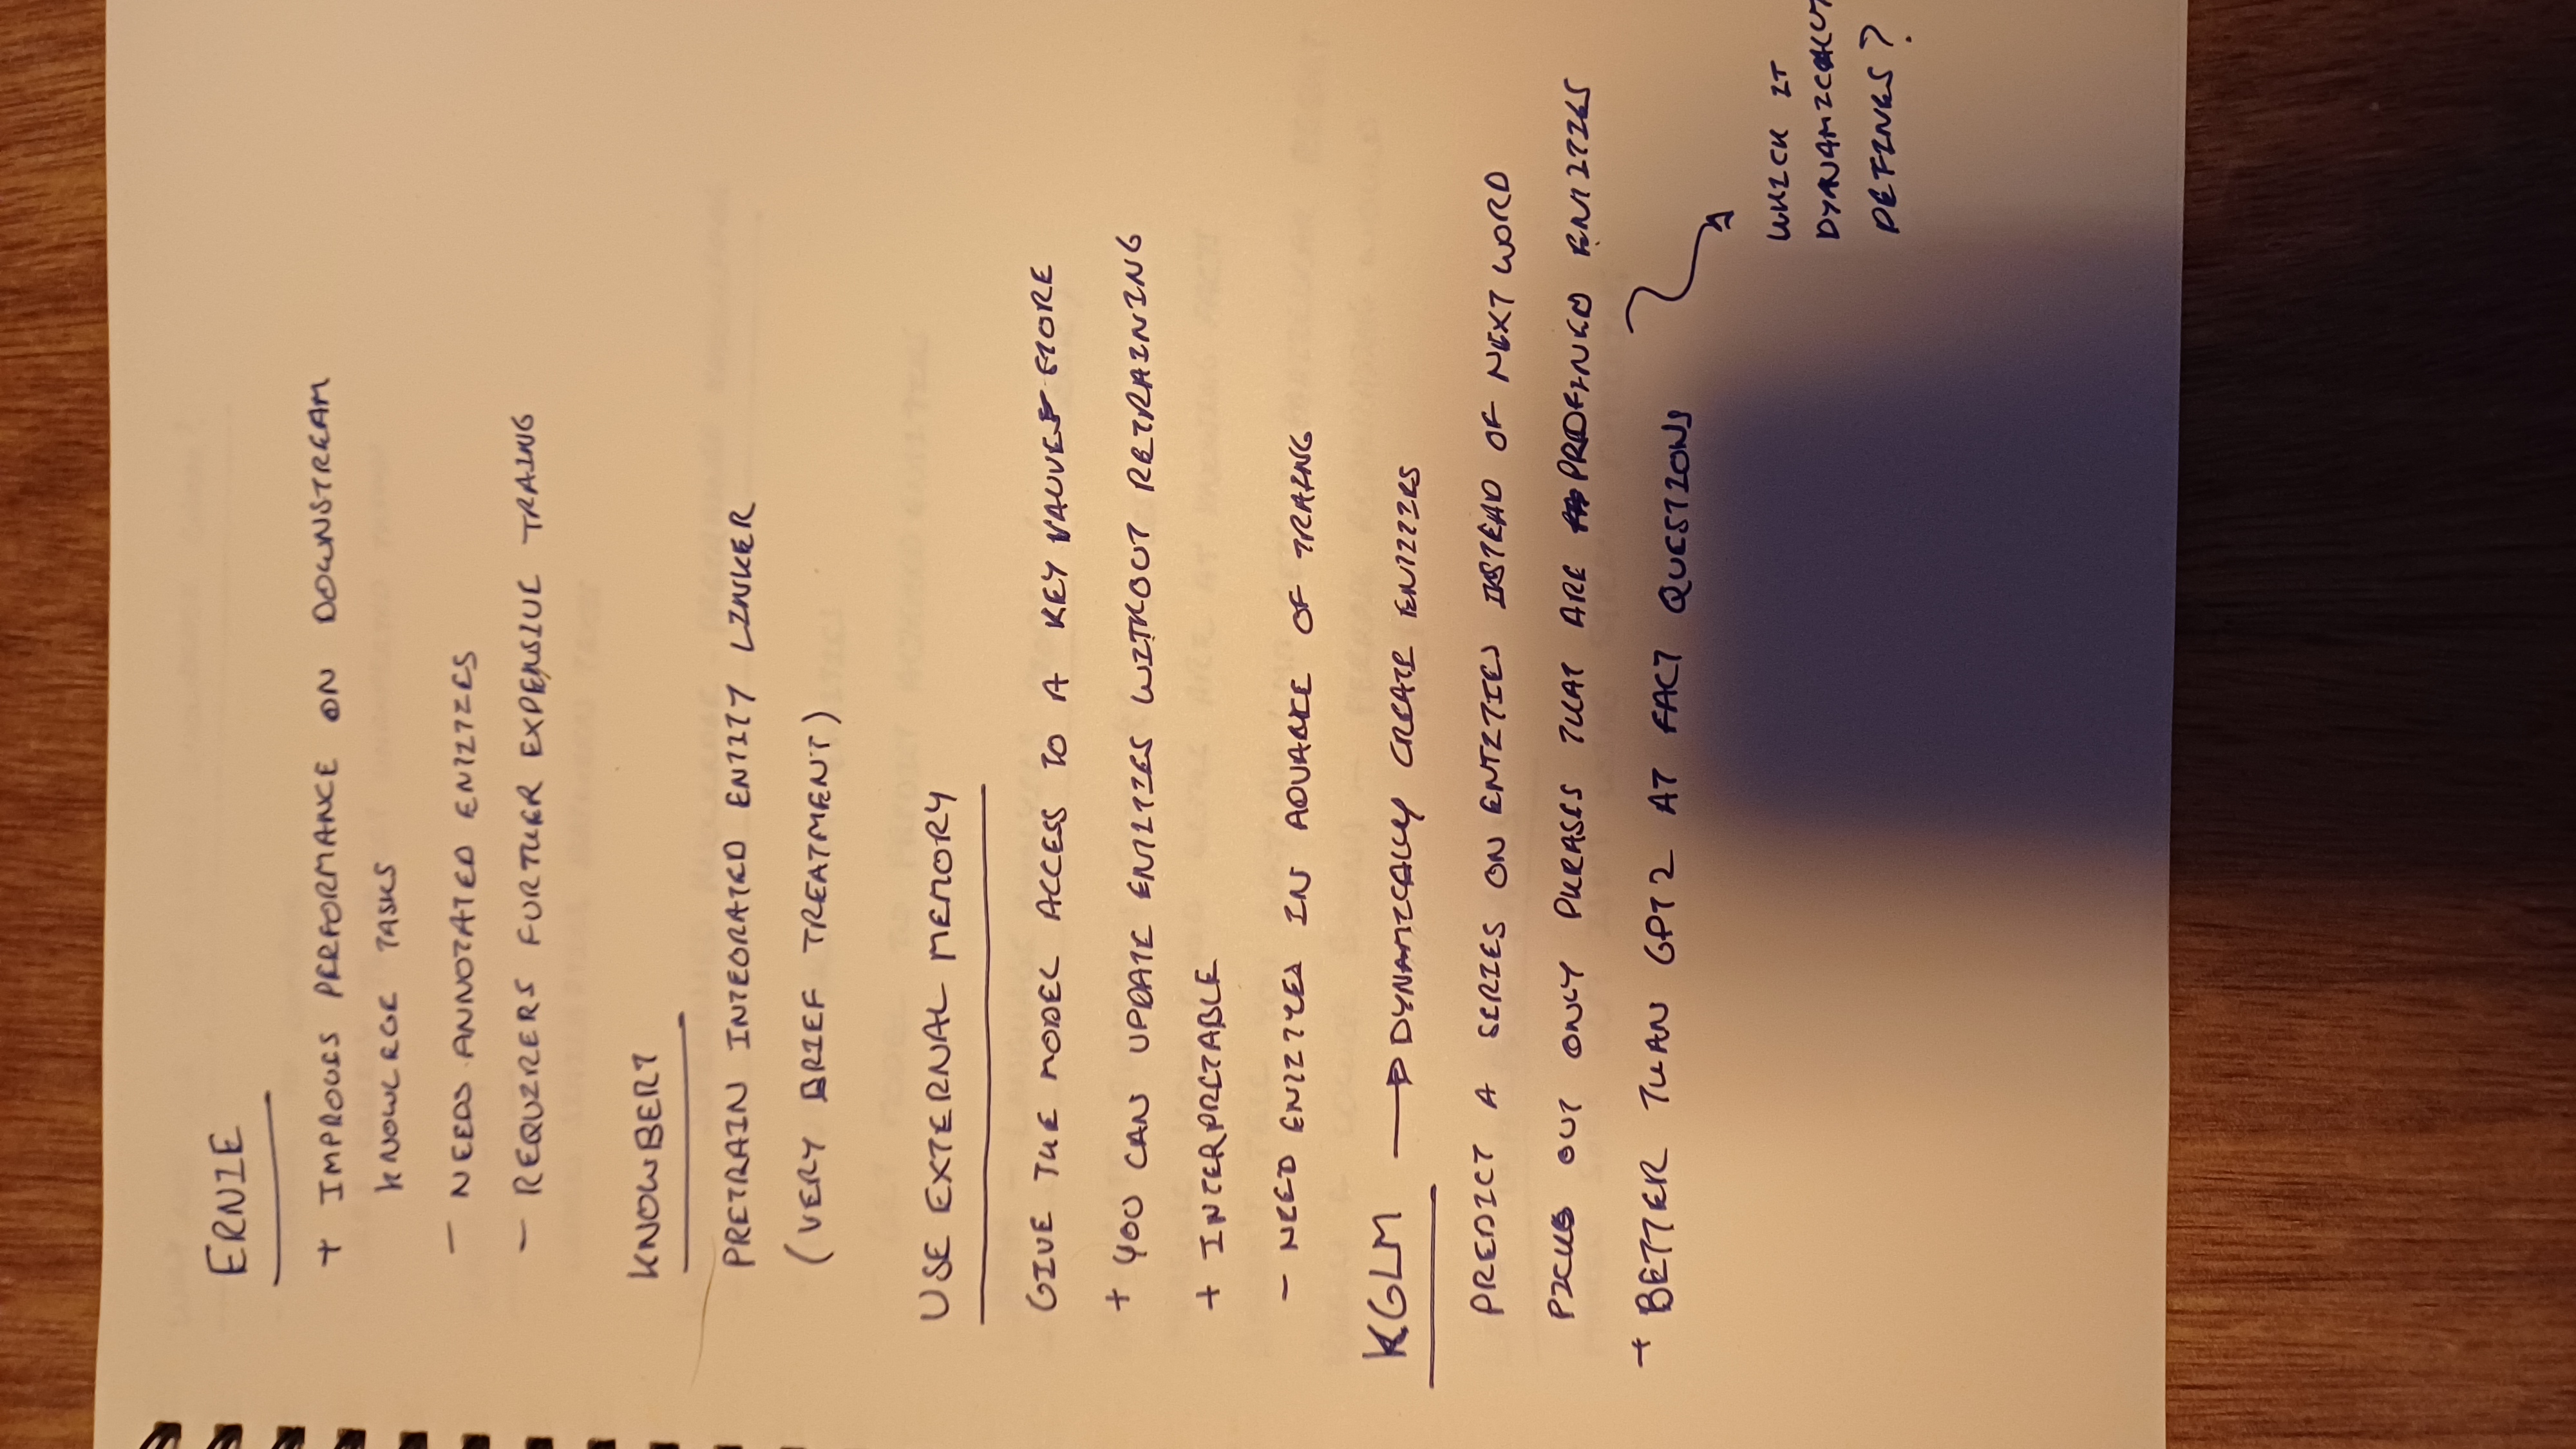 ERNIE
+ IMPROVES PERFORMANCE ON DOWNSTREAM
KNOWLEGE TASKS
- NEEDS ANNOTATED ENTITIES
- REQUIRERS FURTHER EXPENSIVE TRAING
KNOWBERT
PRETRAIN INTEGRATED ENTITY LINKER
(VERY BRIEF TREATMENT)
USE EXTERNAL MEMORY
GIVE THE MODEL ACCESS TO A KEY VALUE STORE
+ YOU CAN UPDATE ENTITIES WITHOUT RETRAINING
+ INTERPRETABLE
- NEED ENTITYES IN ADVANCE OF TRAING
KGLM → DYNAMICALLY CREATE ENTITIES
PREDICT A SERIES ON ENTITIES INSTEAD OF NEXT WORD
PICKS OUT ONLY PHRASES THAT ARE PREDEFINED ENTITIES
+ BETTER THAN GPT2 AT FACT QUESTIONS
WHICH IT
DYNAMICALLY
DEFINES?